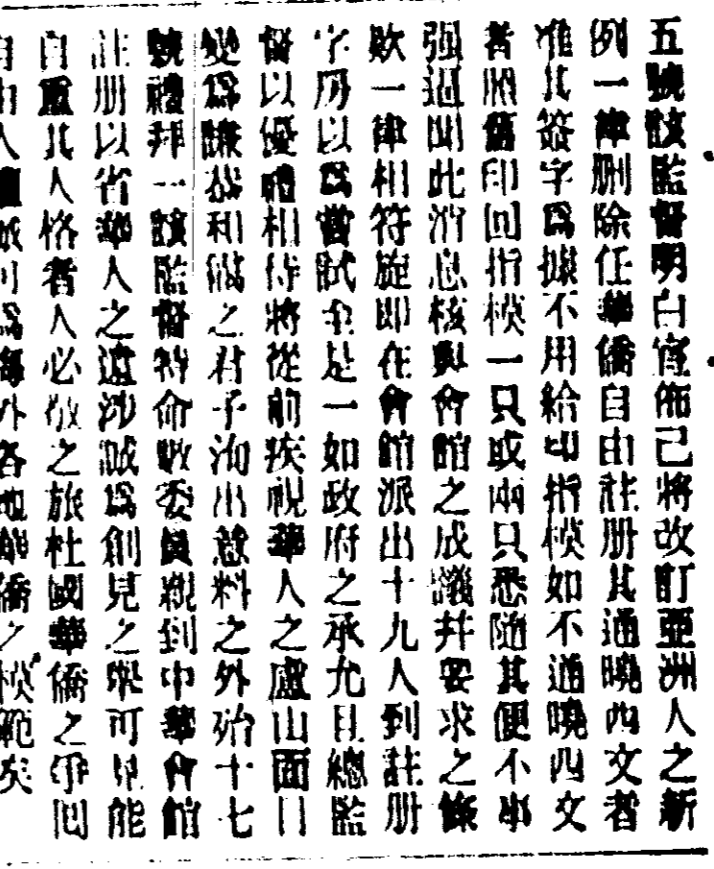 五號該監督明白宣佈己將改訂亞洲人之新
列一律刪除任華僑自由註册其通曉西文者
准其簽字爲據不用給印指模如不通曉西文
者將舊印回指模一只或兩只悉隨其便不事
强逼聞此消息核與會館之成議幷要求之條
欵一律相符旋即在會館派出十九人到註册
字房以爲嘗試至是一如政府之承允且總監
督以優禮相待將從前疾視華人之盧山面目
變爲謙恭和藹之君子洵出意料之外殆十七
號禮拜一該監督特命數委員親到中華會館
註册以省華人之遠涉誠爲創見之舉可見能
自重其人格者人必敬之旅杜國華僑之爭囘
自由人權誠可爲海外各地華僑之模範矣